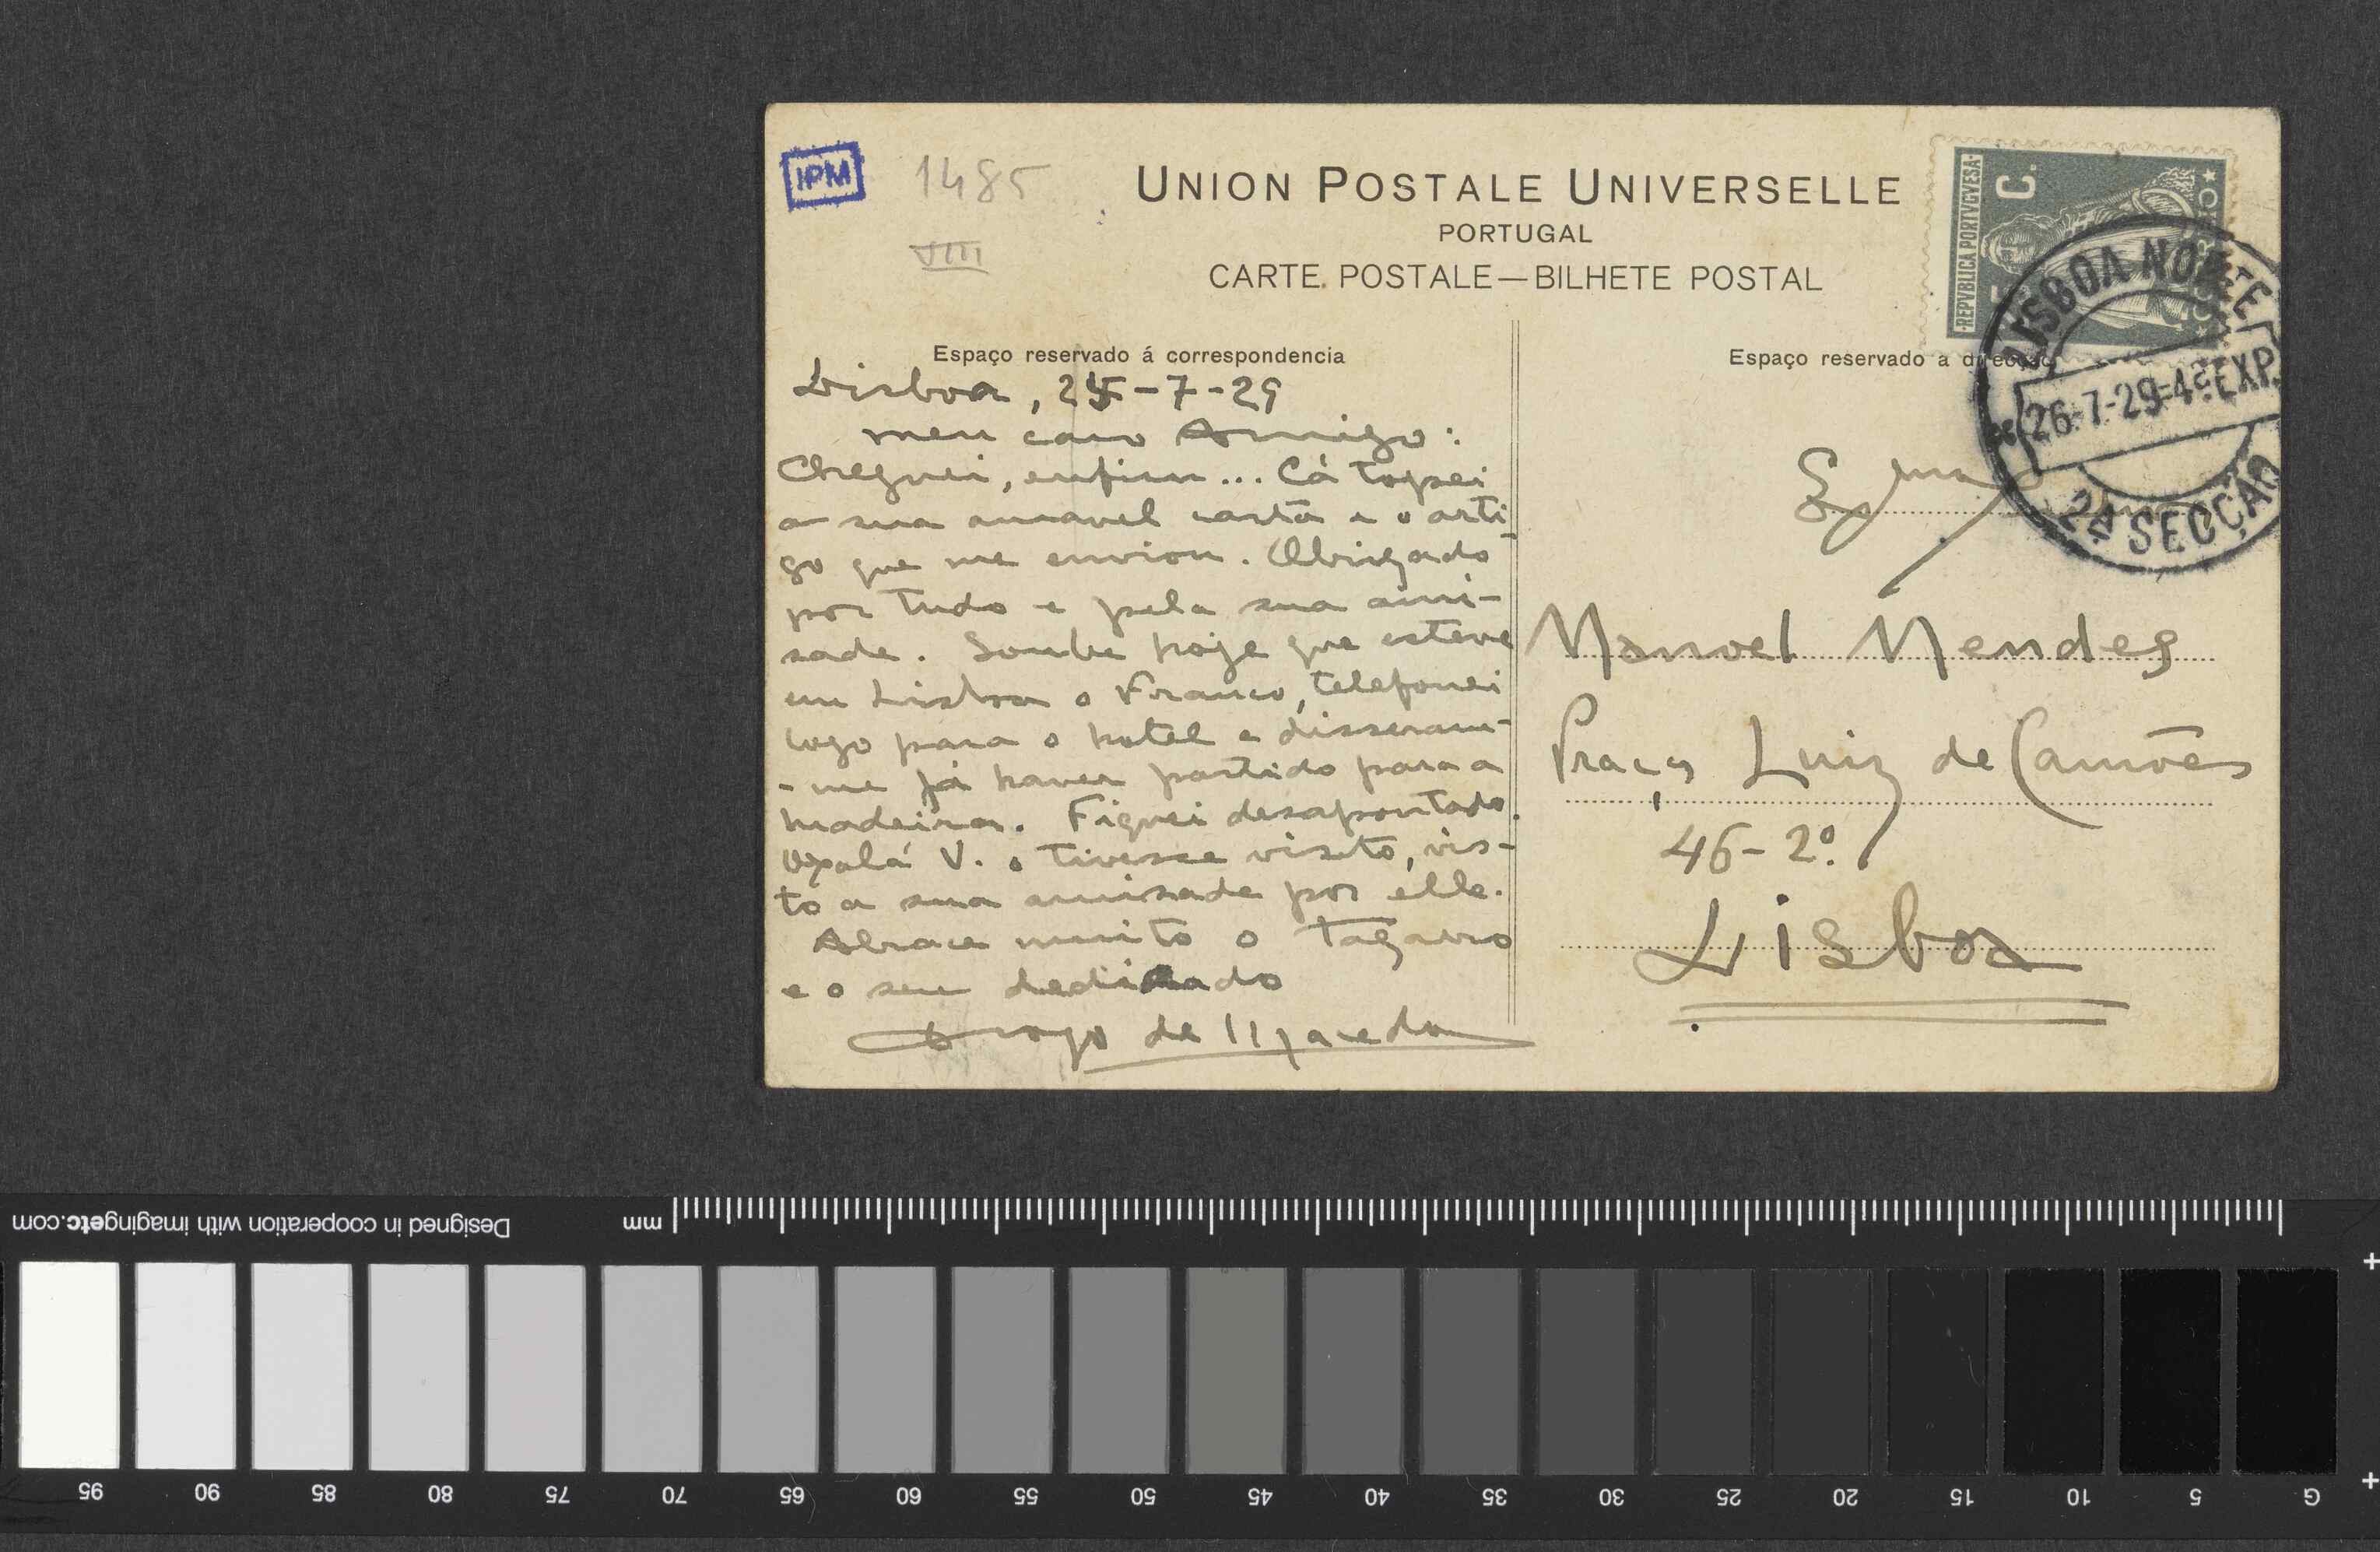 IPM
1485
VIII
UNION POSTALE UNIVERSELLE
PORTUGAL
CARTE POSTALE—BILHETE POSTAL
REPVBLICA PORTVGVESA
C.
LISBOA NORTE
26-7-29-4ªEXP.
2ª SECÇÃO
Espaço reservado á correspondencia
Lisboa, 25-7-29
Meu caro Amigo:
Cheguei, enfim... Cá topei
a sua amavel carta e o arti-
go que me enviou. Obrigado
por tudo e pela sua ami-
sade. Soube hoje que esteve
em Lisboa o Franco, telefonei
logo para o hotel e disseram-
-me já haver partido para a
Madeira. Fiquei desapontado.
Oxalá V. o tivesse visto, vis-
to a sua amisade por elle.
Abrace muito o Tagarro
e o seu dedicado
Diogo de Macedo
Espaço reservado a direcção
Exmo
Manoel Mendes
Praça Luiz de Camões
46-2º.
Lisboa
Designed in cooperation with imagingetc.com
mm
95 90 85 80 75 70 65 60 55 50 45 40 35 30 25 20 15 10 5 G